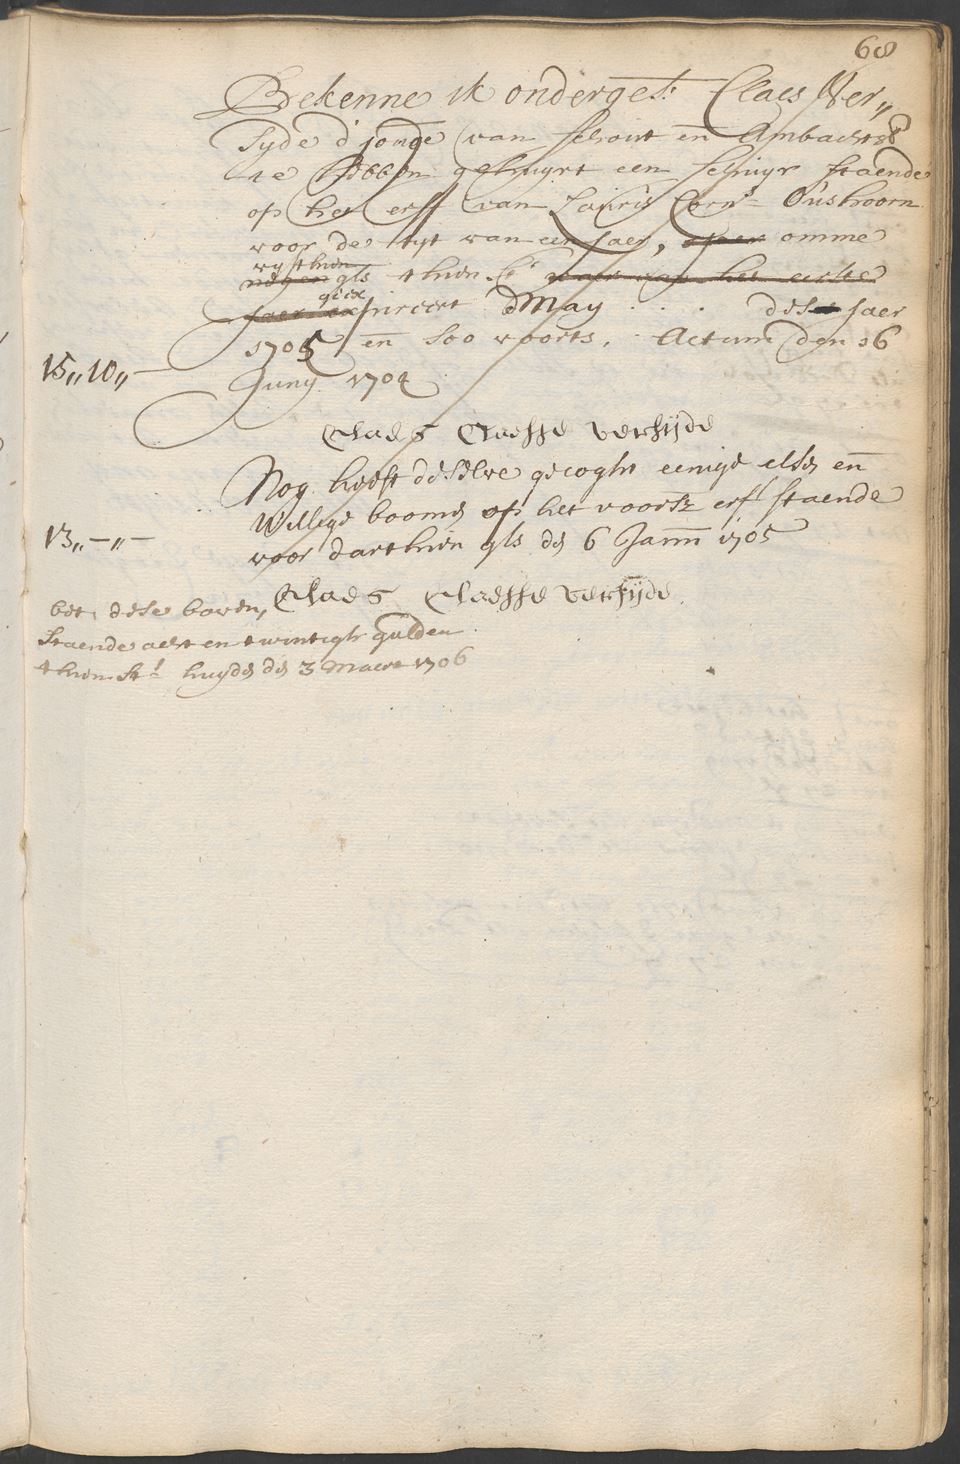 68
Bekenne ik onderget: Claes Ver„
syde d' jonge van Schout en Ambachts
te hebben gehuyrt een schuyr staende
op het erff van Louris Corns Oushoorn
voor de tyt van een jaer, omme
vyfthien
negen gls thien st: voor van het eerste
jaer expireert May . . . dese jaer
1705 en soo voorts. Actum den 16
15„10„—
Juny 1704
Claes Claesse Versijde
Nog heeft deselve gecoght eenige else en
Willige boomen op het voorsz erf staende
13„—„—
voor darthien gls den 6 Jann 1705
Claes Claesse Versijde
bet: dese boven
staende acht en twintigh gulden
thien st: huyden den 3 Maert 1706